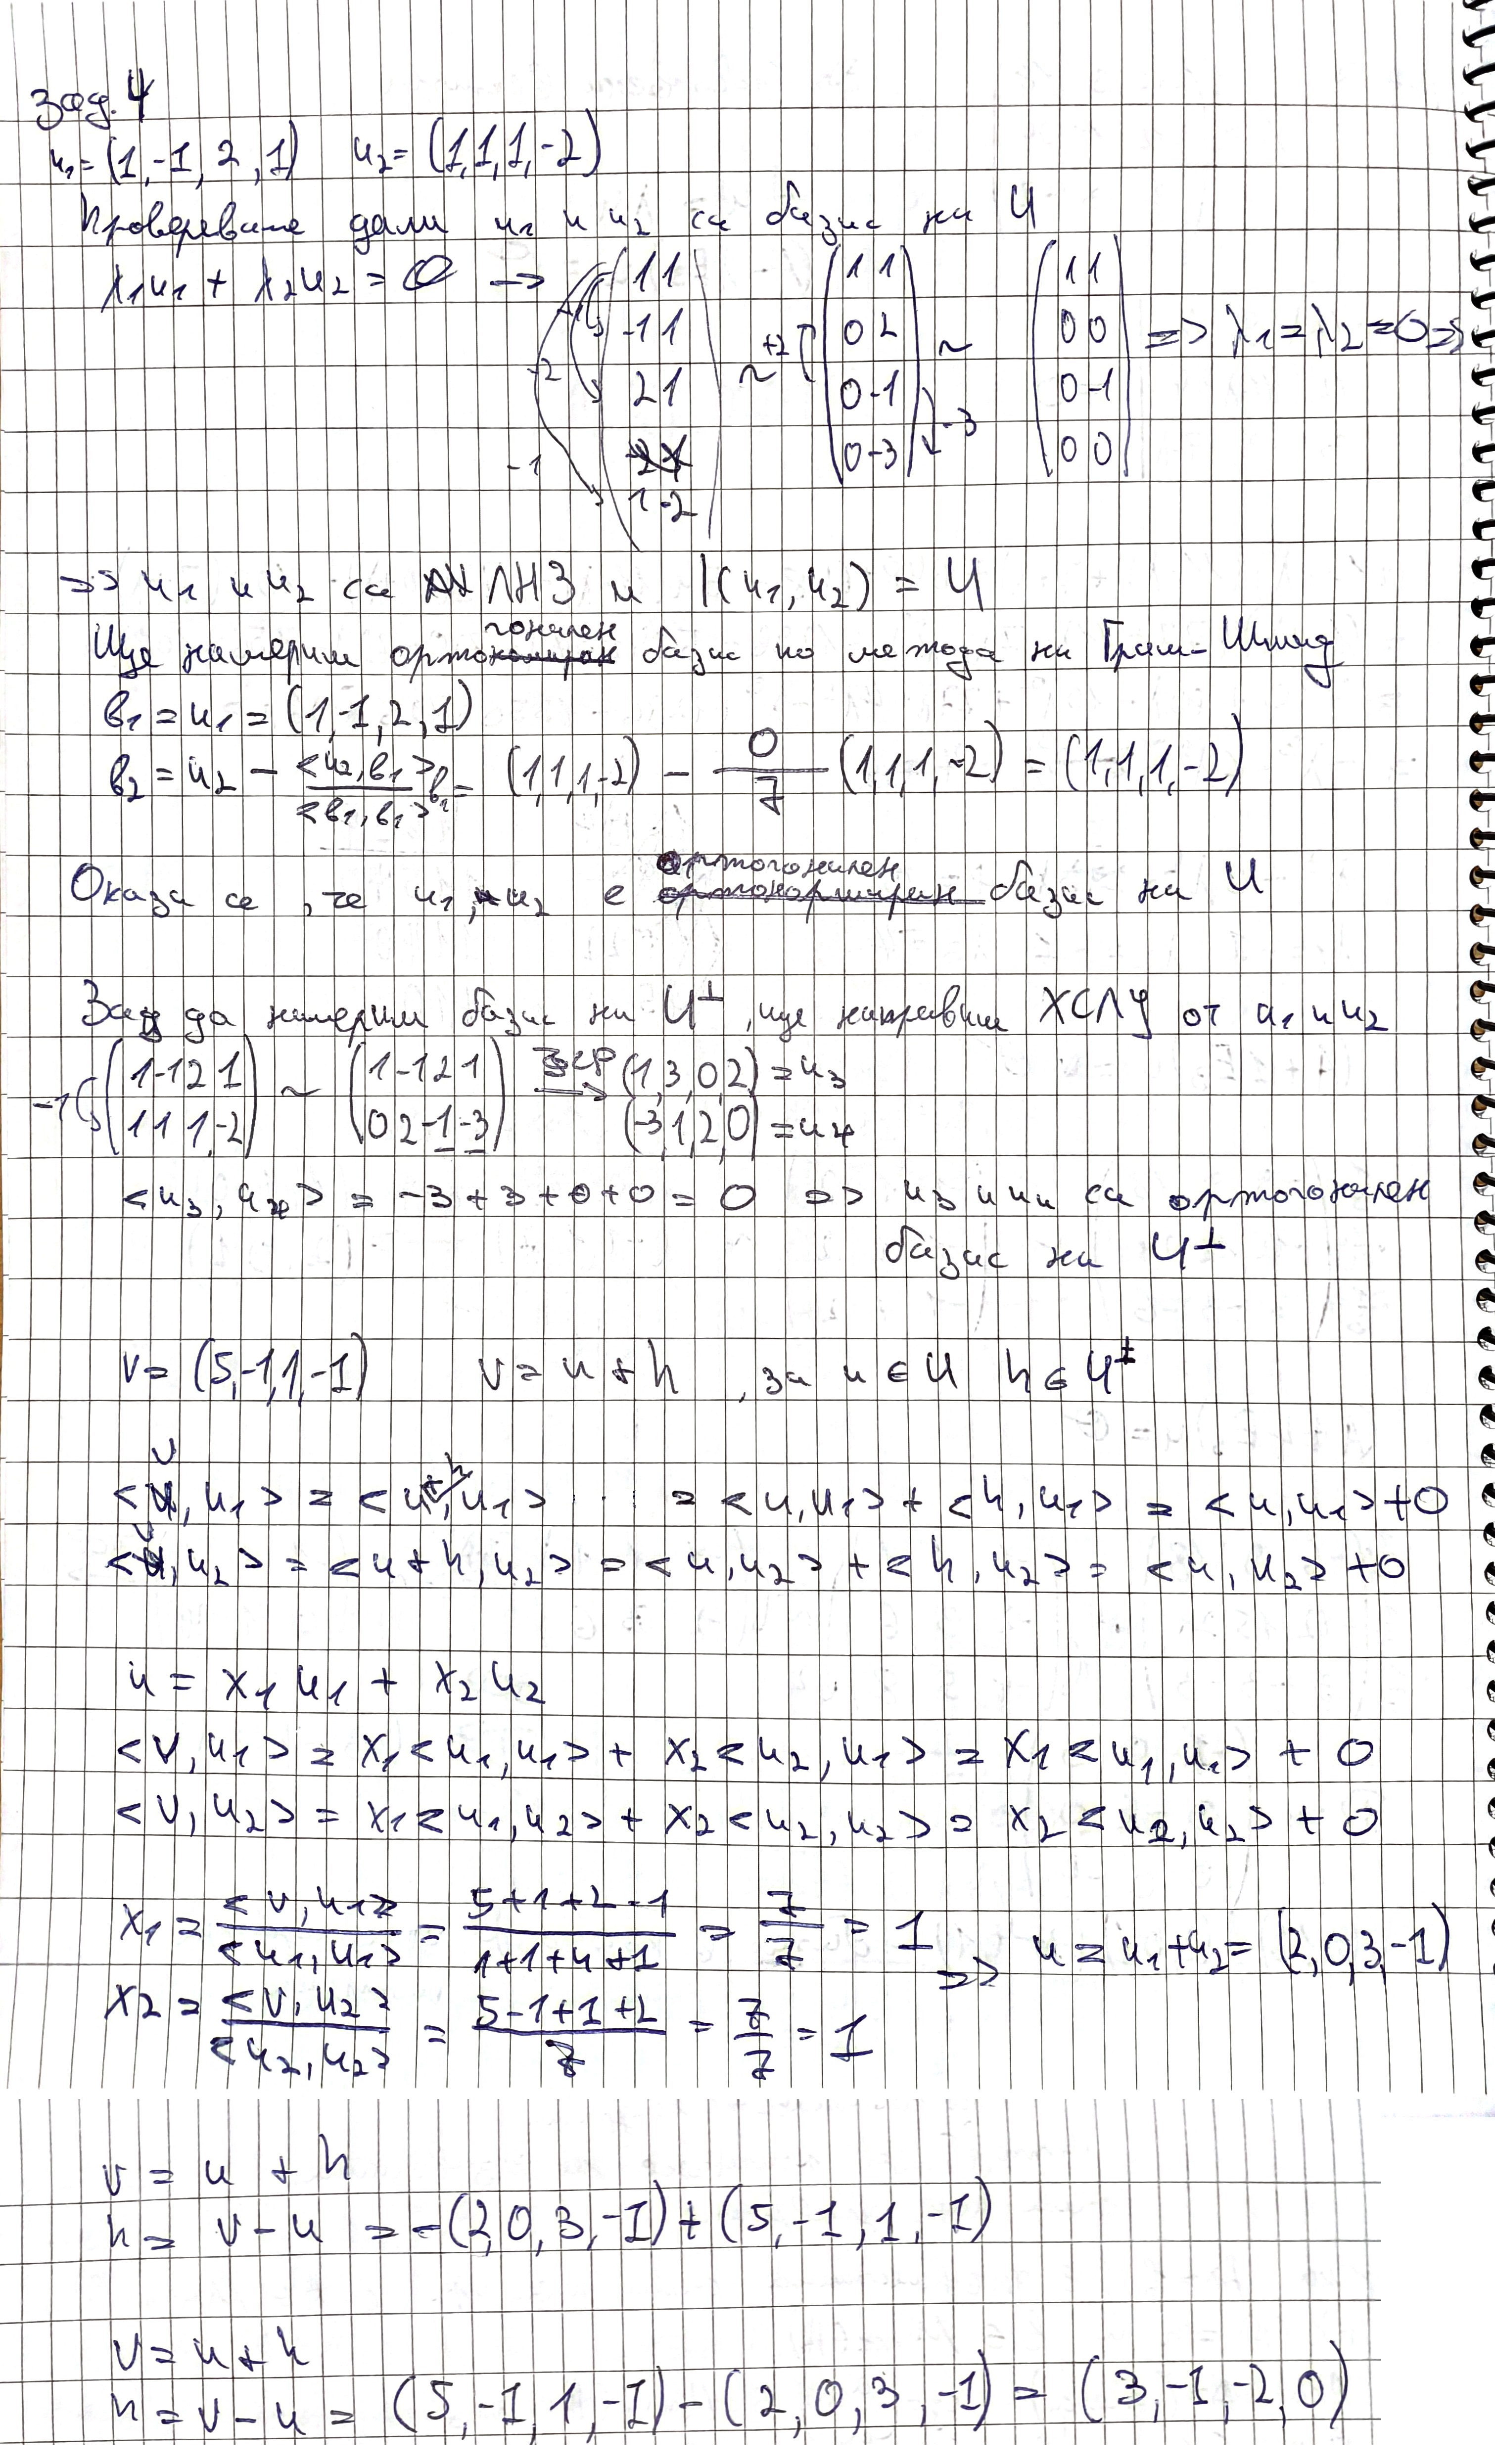 зад. 4
u₁ = (1, -1, 2, 1) u₂ = (1, 1, 1, -2)
Проверяваме дали u₁ и u₂ са базис на U
λ₁u₁ + λ₂u₂ = O → ( 1 1 ) ( 1 1 ) ( 1 1 )
-1 ( -1 1 ) ~ +2 ( 0 2 ) ~ ( 0 0 ) => λ₁ = λ₂ = 0 =>
-2 ( 2 1 ) ( 0 -1 ) -3 ( 0 -1 )
-1 ( 1 -2 ) ( 0 -3 ) ( 0 0 )
=> u₁ и u₂ са ЛНЗ и l(u₁, u₂) = U
Ще намерим ортогонален базис по метода на Грам-Шмид
в₁ = u₁ = (1, -1, 2, 1)
в₂ = u₂ - <u₂, в₁>/<в₁, в₁> в₁ = (1, 1, 1, -2) - 0/7 (1, 1, 1, -2) = (1, 1, 1, -2)
Оказа се, че u₁, u₂ е ортогонален базис на U
За да намерим базис на U⊥, ще направим ХСЛУ от u₁ и u₂
-1 ( 1 -1 2 1 ) ~ ( 1 -1 2 1 ) ФСР → (1, 3, 0, 2) = u₃
( 1 1 1 -2 ) ( 0 2 -1 -3 ) (-3, 1, 2, 0) = u₄
<u₃, u₄> = -3 + 3 + 0 + 0 = 0 => u₃ и u₄ са ортогонален
базис на U⊥
v = (5, -1, 1, -1) v = u + h , за u ∈ U h ∈ U⊥
<v, u₁> = <u + h, u₁> ... = <u, u₁> + <h, u₁> = <u, u₁> + 0
<v, u₂> = <u + h, u₂> = <u, u₂> + <h, u₂> = <u, u₂> + 0
u = x₁u₁ + x₂u₂
<v, u₁> = x₁<u₁, u₁> + x₂<u₂, u₁> = x₁<u₁, u₁> + 0
<v, u₂> = x₁<u₁, u₂> + x₂<u₂, u₂> = x₂<u₂, u₂> + 0
x₁ = <v, u₁>/<u₁, u₁> = (5+1+2-1)/(1+1+4+1) = 7/7 = 1 => u = u₁+u₂ = (2, 0, 3, -1)
x₂ = <v, u₂>/<u₂, u₂> = (5-1+1+2)/7 = 7/7 = 1
v = u + h
h = v - u = -(2, 0, 3, -1) + (5, -1, 1, -1)
v = u + h
h = v - u = (5, -1, 1, -1) - (2, 0, 3, -1) = (3, -1, -2, 0)